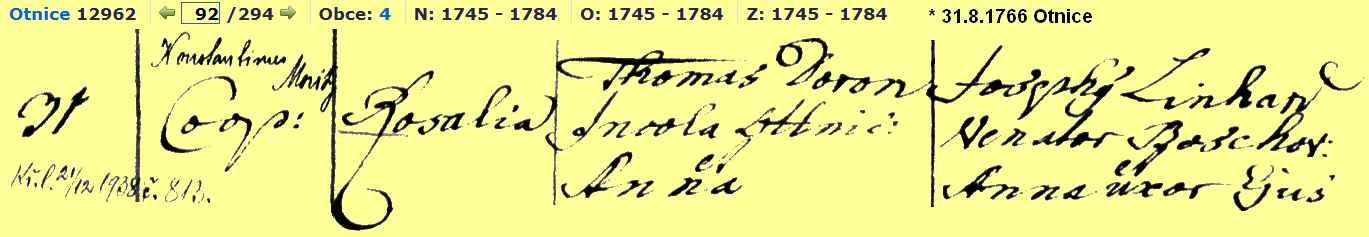 Otnice 12962 92 /294 Obce: 4 N: 1745 - 1784 O: 1745 - 1784 Z: 1745 - 1784 * 31.8.1766 Otnice
Konstantinus
Moritz
31
Coop:
Rosalia
Thomas Doron
Incola Ottnic:
Anna
Josephus Linhard
Venator Boschov:
Anna uxor Ejus
Kř. l. 21/12 1938 č. 813.